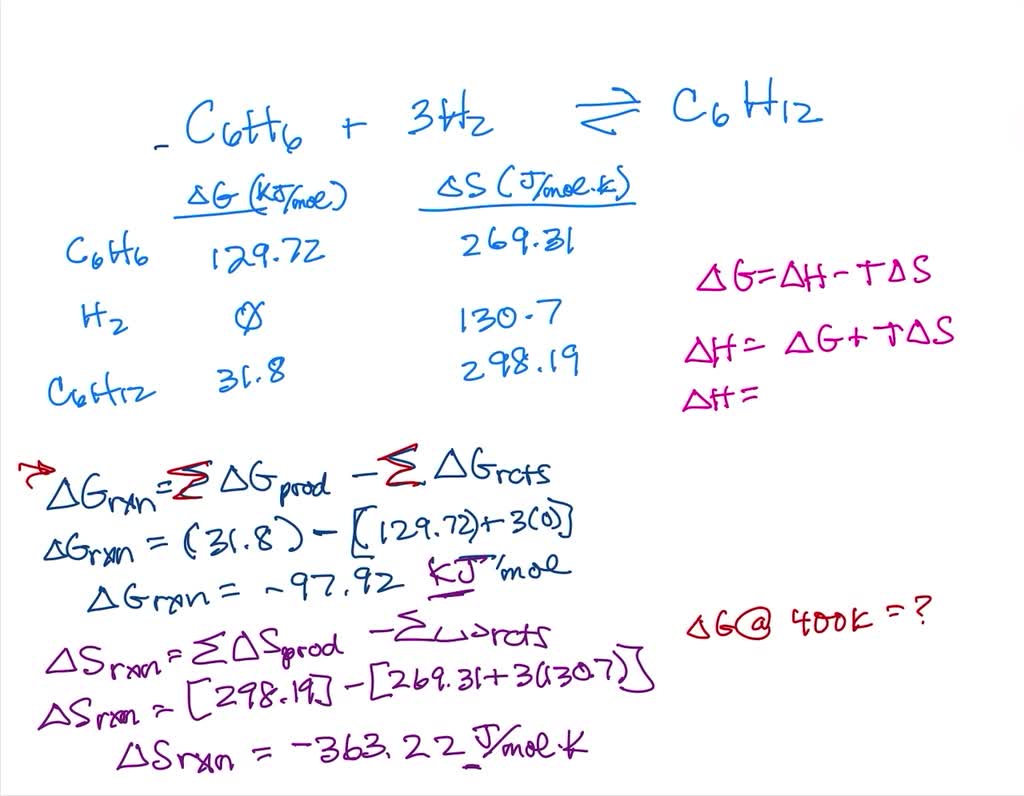 C6H6 + 3H2 ⇌ C6H12
ΔG (KJ/mol) ΔS (J/mol·K)
C6H6 129.72 269.31
H2 Ø 130.7
C6H12 31.8 298.19
ΔG=ΔH-TΔS
ΔH= ΔG+TΔS
ΔH=
→ ΔGrxn=ΣΔGprod -ΣΔGrcts
ΔGrxn = (31.8) - [129.72)+3(0)]
ΔGrxn = -97.92 KJ/mol
ΔSrxn=ΣΔSprod -Σ rcts
ΔSrxn = [298.19]-[269.31+3(130.7)]
ΔSrxn = -363.22 J/mol·K
ΔG@ 400K = ?